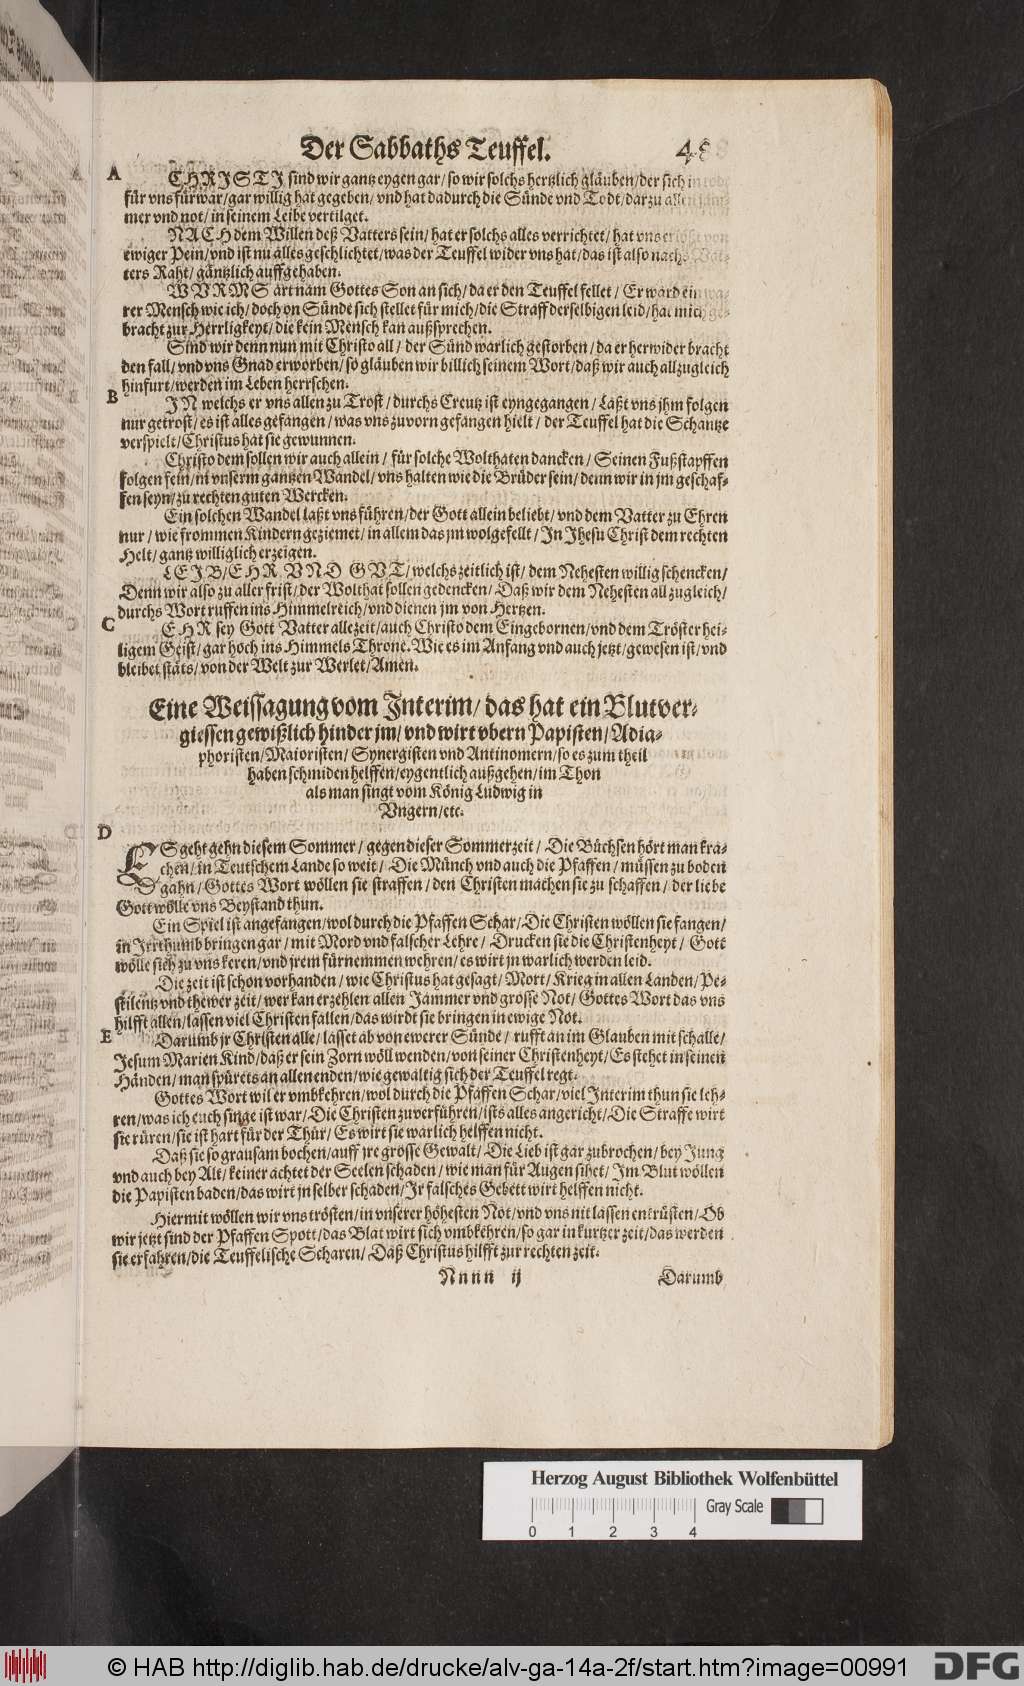 Der Sabbaths Teuffel.
A
CHRISTI sind wir gantz eygen gar/ so wir solchs hertzlich gläuben/ der sich in
für vns fürwar/ gar willig hat gegeben/ vnd hat dadurch die Sünde vnd Todt/ dar zu allen jam-
mer vnd not/ in seinem Leibe vertilget.
NACH dem Willen deß Vatters sein/ hat er solchs alles verrichtet/ hat vns erlöst von
ewiger Pein/ vnd ist nu alles geschlichtet/ was der Teuffel wider vns hat/ das ist also nachs Vat-
ters Raht/ gäntzlich auffgehaben.
WVRMS art nam Gottes Son an sich/ da er den Teuffel fellet/ Er ward ein wa-
rer Mensch wie ich/ doch on Sünde sich stellet für mich/ die Straff derselbigen leid/ hat mich ge-
bracht zur Herrligkeyt/ die kein Mensch kan außsprechen.
Sind wir denn nun mit Christo all/ der Sünd warlich gestorben/ da er herwider bracht
den fall/ vnd vns Gnad erworben/ so gläuben wir billich seinem Wort/ daß wir auch allzugleich
hinfurt/ werden im Leben herrschen.
B
IN welchs er vns allen zu Trost/ durchs Creutz ist eyngegangen/ Laßt vns jhm folgen
nur getrost/ es ist alles gefangen/ was vns zuvorn gefangen hielt/ der Teuffel hat die Schantze
verspielt/ Christus hat sie gewunnen.
Christo dem sollen wir auch allein/ für solche Wolthaten dancken/ Seinen Fußstapffen
folgen fein/ in vnserm gantzen Wandel/ vns halten wie die Brüder sein/ denn wir in jm geschaf-
fen seyn/ zu rechten guten Wercken.
Ein solchen Wandel laßt vns führen/ der Gott allein beliebt/ vnd dem Vatter zu Ehren
nur/ wie frommen Kindern geziemet/ in allem das jm wolgefellt/ In Jhesu Christ dem rechten
Helt/ gantz williglich erzeigen.
LEIB/ EHR VND GVT/ welchs zeitlich ist/ dem Nehesten willig schencken/
Denn wir also zu aller frist/ der Wolthat sollen gedencken/ Daß wir dem Nehesten all zugleich/
durchs Wort ruffen ins Himmelreich/ vnd dienen jm von Hertzen.
C
EHR sey Gott Vatter allezeit/ auch Christo dem Eingebornen/ vnd dem Tröster hei-
ligem Geist/ gar hoch ins Himmels Throne. Wie es im Anfang vnd auch jetzt/ gewesen ist/ vnd
bleibet stäts/ von der Welt zur Werlet/ Amen.
Eine Weissagung vom Interim/ das hat ein Blutver-
giessen gewißlich hinder jm/ vnd wirt vbern Papisten/ Adia-
phoristen/ Maioristen/ Synergisten vnd Antinomern/ so es zum theil
haben schmiden helffen/ eygentlich außgehen/ im Thon
als man singt vom König Ludwig in
Vngern/ etc.
D
ES geht gehn diesem Sommer/ gegen dieser Sommerzeit/ Die Büchsen hört man kra-
chen/ in Teutschem Lande so weit/ Die Münch vnd auch die Pfaffen/ müssen zu boden
gahn/ Gottes Wort wöllen sie straffen/ den Christen machen sie zu schaffen/ der liebe
Gott wölle vns Beystand thun.
Ein Spiel ist angefangen/ wol durch die Pfaffen Schar/ Die Christen wöllen sie fangen/
in Irrthumb bringen gar/ mit Mord vnd falscher Lehre/ Drucken sie die Christenheyt/ Gott
wölle sich zu vns keren/ vnd jrem fürnemmen wehren/ es wirt jn warlich werden leid.
Die zeit ist schon vorhanden/ wie Christus hat gesagt/ Mort/ Krieg in allen Landen/ Pe-
stilentz vnd thewer zeit/ wer kan erzehlen allen Jammer vnd grosse Not/ Gottes Wort das vns
hilfft allen/ lassen viel Christen fallen/ das wirdt sie bringen in ewige Not.
E
Darumb jr Christen alle/ lasset ab von ewerer Sünde/ rufft an im Glauben mit schalle/
Jesum Marien Kind/ daß er sein Zorn wöll wenden/ von seiner Christenheyt/ Es stehet in seinen
Händen/ man spürets an allen enden/ wie gewaltig sich der Teuffel regt.
Gottes Wort wil er vmbkehren/ wol durch die Pfaffen Schar/ viel Interim thun sie leh-
ren/ was ich euch singe ist war/ Die Christen zuverführen/ ists alles angericht/ Die Straffe wirt
sie rüren/ sie ist hart für der Thür/ Es wirt sie warlich helffen nicht.
Daß sie so grausam bochen/ auff jre grosse Gewalt/ Die Lieb ist gar zubrochen/ bey Jung
vnd auch bey Alt/ keiner achtet der Seelen schaden/ wie man für Augen sihet/ Im Blut wöllen
die Papisten baden/ das wirt jn selber schaden/ Ir falsches Gebett wirt helffen nicht.
Hiermit wöllen wir vns trösten/ in vnserer höhesten Not/ vnd vns nit lassen entrüsten/ Ob
wir jetzt sind der Pfaffen Spott/ das Blat wirt sich vmbkehren/ so gar in kurtzer zeit/ das werden
sie erfahren/ die Teuffelische Scharen/ Daß Christus hilfft zur rechten zeit.
Nnnn ij
Darumb
Herzog August Bibliothek Wolfenbüttel
Gray Scale
0 1 2 3 4
© HAB http://diglib.hab.de/drucke/alv-ga-14a-2f/start.htm?image=00991
DFG